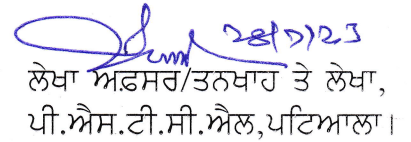 28/7/23
ਲੇਖਾ ਅਫ਼ਸਰ/ਤਨਖਾਹ ਤੇ ਲੇਖਾ,
ਪੀ.ਐਸ.ਟੀ.ਸੀ.ਐਲ,ਪਟਿਆਲਾ।